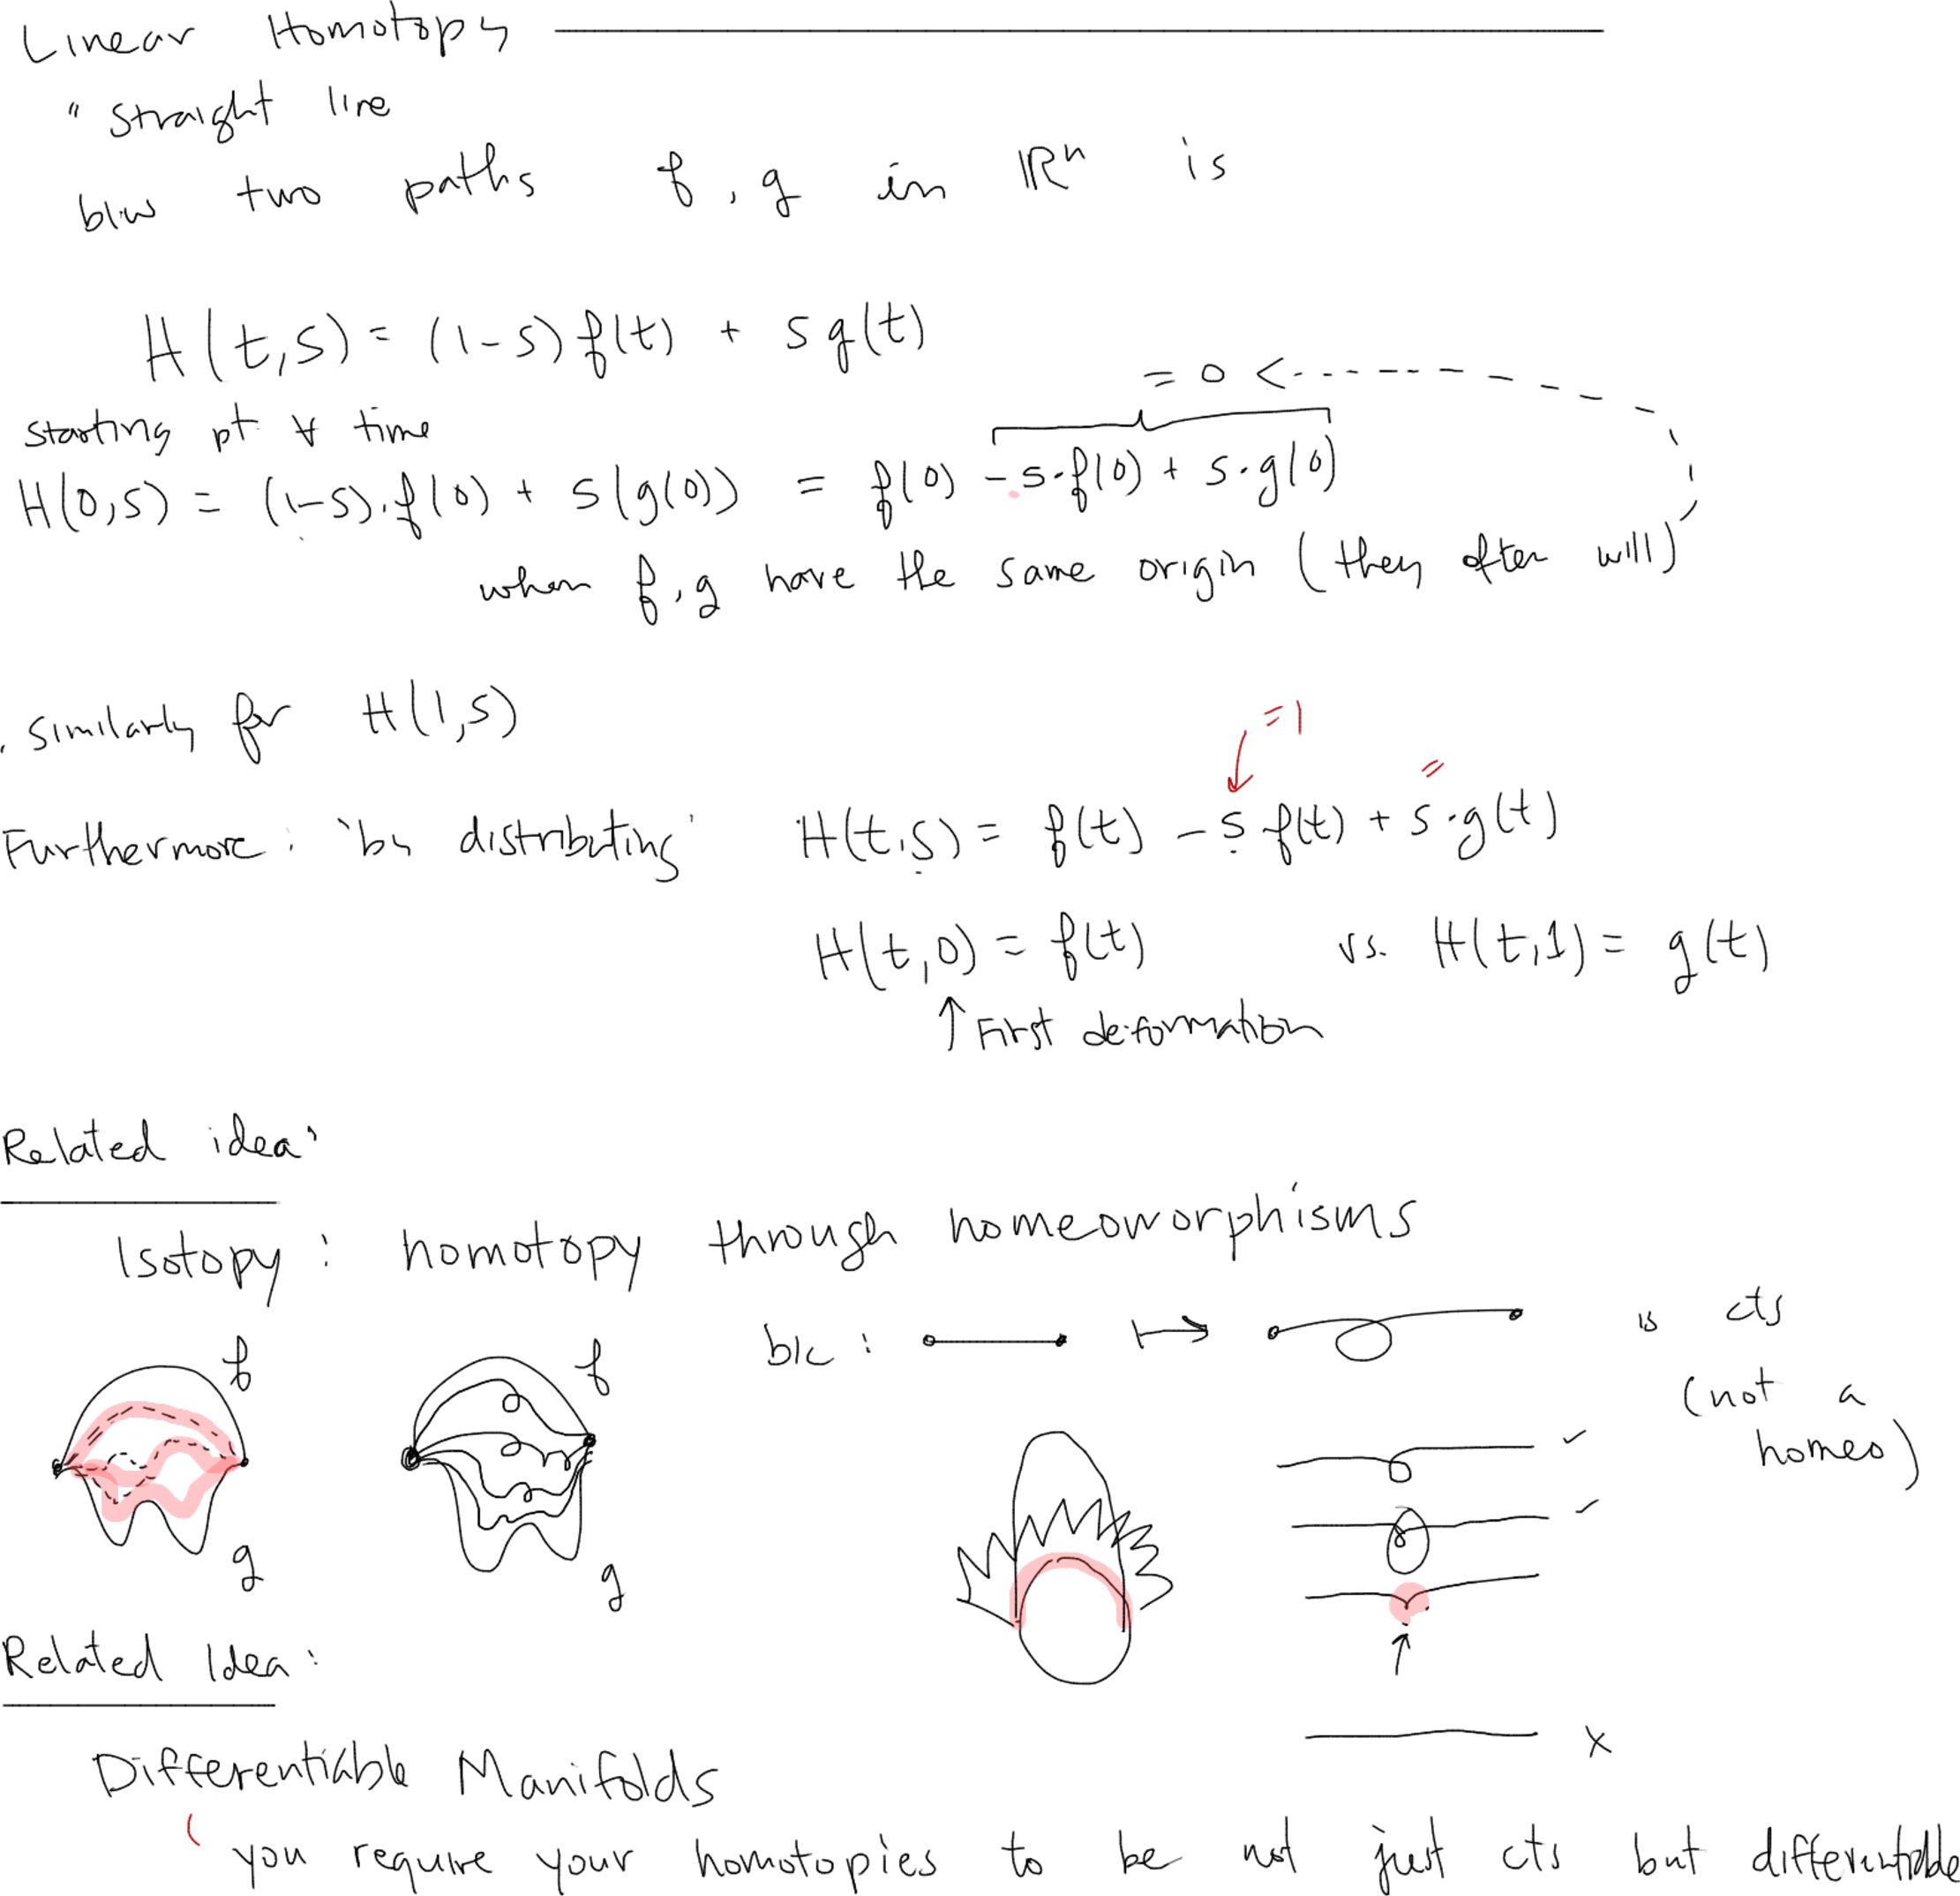 Linear Homotopy
" straight line
b/w two paths f, g in ℝⁿ is
H(t,s) = (1-s) f(t) + s g(t)
= 0 <
starting pt ∀ time
H(0,s) = (1-s).f(0) + s(g(0)) = f(0) -s·f(0) + s·g(0)
when f,g have the same origin (they often will)
. similarly for H(1,s)
=1
=
Furthermore: 'by distributing' H(t,s) = f(t) - s f(t) + s·g(t)
H(t,0) = f(t) vs. H(t,1) = g(t)
↑ First deformation
Related idea:
Isotopy: homotopy through homeomorphisms
b/c: ↦ is cts
(not a
homeo)
f f
✓
✓
g g
Related Idea:
x
Differentiable Manifolds
( you require your homotopies to be not just cts but differentiable